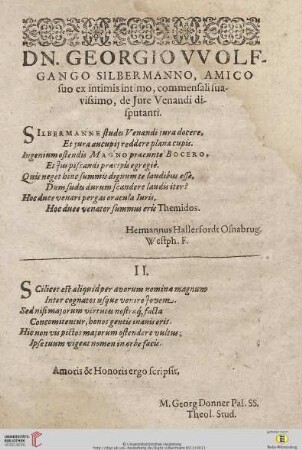 DN. GEORGIO VVOLF-
GANGO SILBERMANNO, AMICO
suo ex intimis intimo, commensali sua-
vissimo, de Jure Venandi di-
sputanti.
SILBERMANNE studes Venandi jura docere,
Et jura aucupij reddere plana cupis.
Ingenium ostendis MAGNO praeeunte BOCERO,
Et Jus piscandi praecipis egregie.
Quis neget hinc summis dignum te laudibus esse,
Dum studes durum scandere laudis iter?
Hoc duce venari pergas oracula Iuris,
Hoc duce venator summus eris Themidos.
Hermannus Hallerfordt Osnabrug.
Westph. F.
II.
SCilicet est aliquid per avorum nomina magnum
Inter cognatos usque venire Jovem.
Sed nisi majorum virtutes nostraq́; facta
Concomitentur, honos gentis inanis erit.
Hic non vis pictos majorum ostendere vultus;
Ipse tuum vigeat nomen in orbe facis.
Amoris & Honoris ergo scripsit,
M. Georg Donner Pal. SS.
Theol. Stud.
UNIVERSITÄTS-
BIBLIOTHEK
HEIDELBERG
© Universitätsbibliothek Heidelberg
Baden-Württemberg